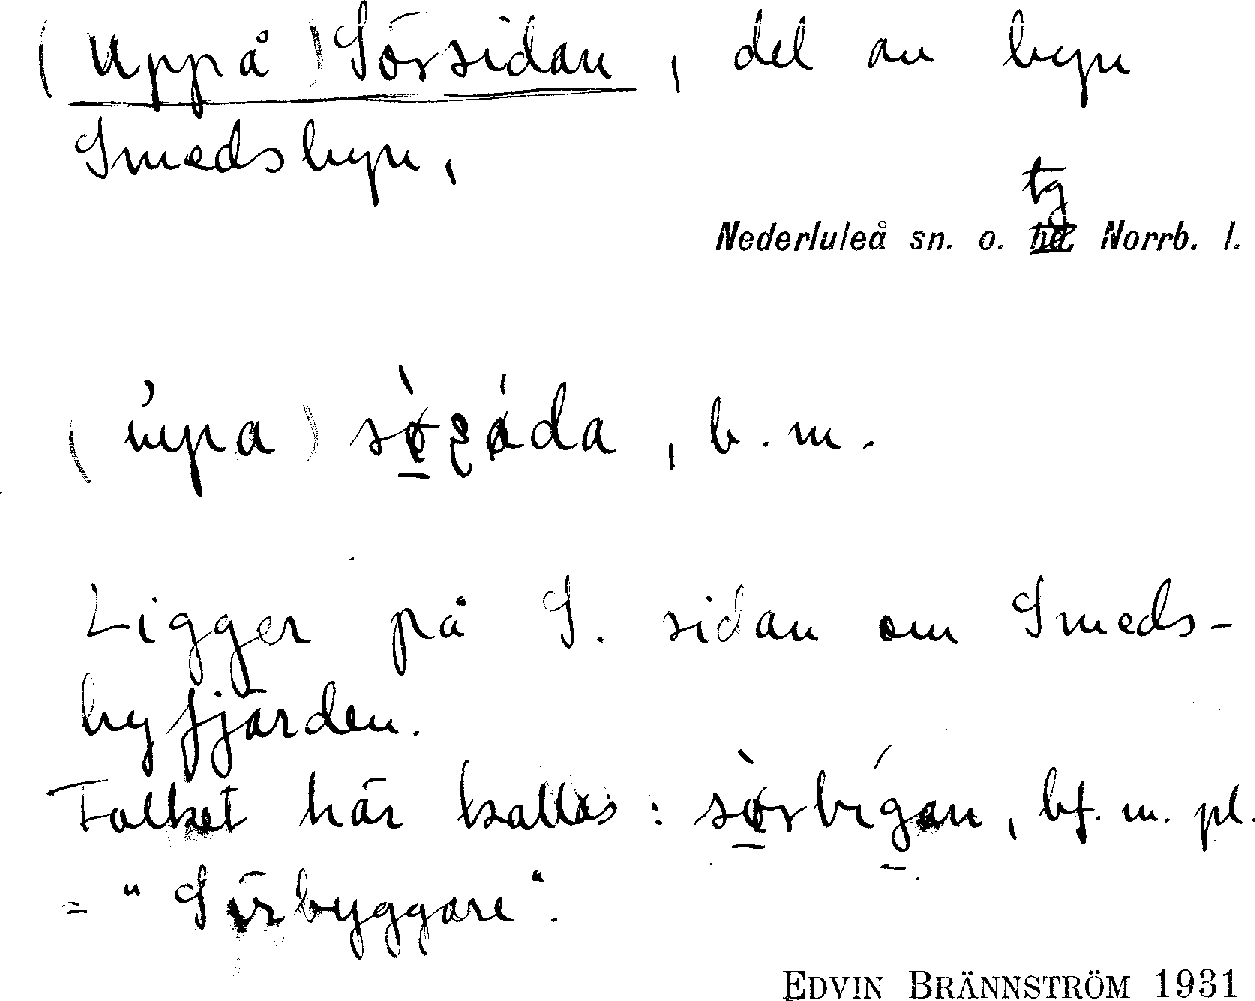 (Uppå) Sörsidan, del av byn
Smedsbyn,
tg
Nederluleå sn. o. Norrb. l.
(úpa) , b.m.
Ligger på S. sidan om Smeds-
byfjärden.
Folket här kallas: , bf. m. pl.
= "Sörbyggare".
EDVIN BRÄNNSTRÖM 1931